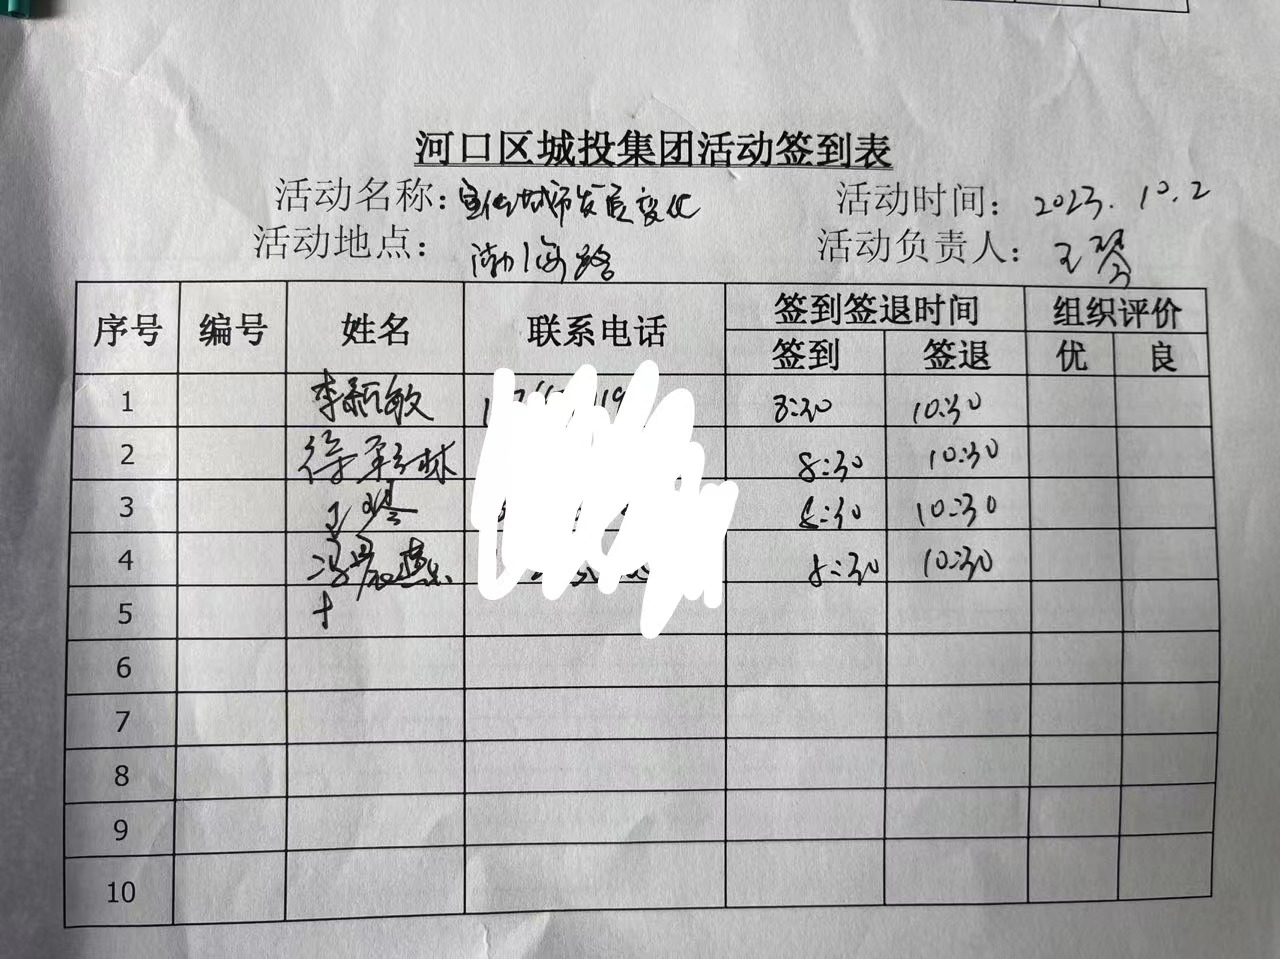 河口区城投集团活动签到表
活动名称：宣传城市发展变化 活动时间：2023.10.2
活动地点：渤海路 活动负责人：王琴
序号 编号 姓名 联系电话 签到签退时间 组织评价
签到 签退 优 良
1 李新敏 8:30 10:30
2 徐 林 8:30 10:30
3 王琴 8:30 10:30
4 冯 燕 8:30 10:30
5
6
7
8
9
10